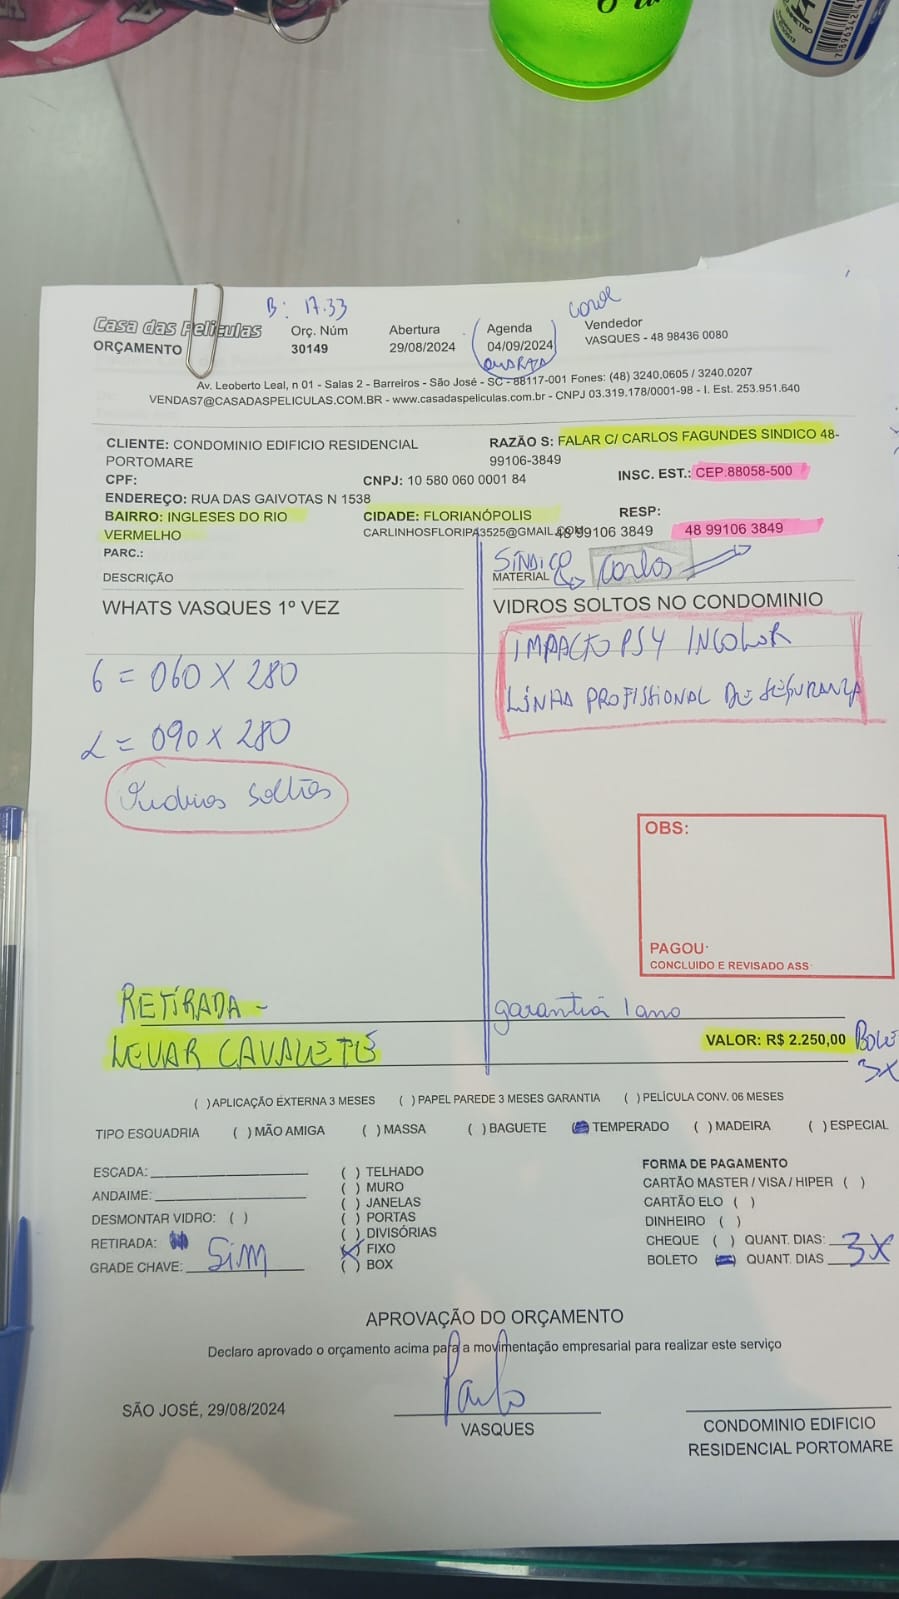 B: 17.33
Casa das Películas
ORÇAMENTO
Orç. Núm
30149
Abertura
29/08/2024
Agenda
04/09/2024
QUARTA
Vendedor
VASQUES - 48 98436 0080
Av. Leoberto Leal, n 01 - Salas 2 - Barreiros - São José - SC - 88117-001 Fones: (48) 3240.0605 / 3240.0207
VENDAS7@CASADASPELICULAS.COM.BR - www.casadaspeliculas.com.br - CNPJ 03.319.178/0001-98 - I. Est. 253.951.640
CLIENTE: CONDOMINIO EDIFICIO RESIDENCIAL
PORTOMARE
RAZÃO S: FALAR C/ CARLOS FAGUNDES SINDICO 48-
99106-3849
CPF:
CNPJ: 10 580 060 0001 84
INSC. EST.: CEP:88058-500
ENDEREÇO: RUA DAS GAIVOTAS N 1538
BAIRRO: INGLESES DO RIO
VERMELHO
CIDADE: FLORIANÓPOLIS
RESP:
CARLINHOSFLORIPA3525@GMAIL.COM
48 99106 3849
48 99106 3849
PARC.:
SÍNDICO Carlos
DESCRIÇÃO
MATERIAL
WHATS VASQUES 1º VEZ
VIDROS SOLTOS NO CONDOMINIO
IMPACTO PS4 INCOLOR
LINHA PROFISSIONAL DE SEGURANZA
6 = 060 X 280
2 = 090 X 280
Vidros soltos
OBS:
PAGOU:
CONCLUIDO E REVISADO ASS
RETIRADA -
LEVAR CAVALETE
garantia 1 ano
VALOR: R$ 2.250,00
3X
( ) APLICAÇÃO EXTERNA 3 MESES ( ) PAPEL PAREDE 3 MESES GARANTIA ( ) PELÍCULA CONV. 06 MESES
TIPO ESQUADRIA ( ) MÃO AMIGA ( ) MASSA ( ) BAGUETE ( ) TEMPERADO ( ) MADEIRA ( ) ESPECIAL
ESCADA:
ANDAIME:
DESMONTAR VIDRO: ( )
RETIRADA:
GRADE CHAVE: Sim
( ) TELHADO
( ) MURO
( ) JANELAS
( ) PORTAS
( ) DIVISÓRIAS
(X) FIXO
( ) BOX
FORMA DE PAGAMENTO
CARTÃO MASTER / VISA / HIPER ( )
CARTÃO ELO ( )
DINHEIRO ( )
CHEQUE ( ) QUANT. DIAS:
BOLETO QUANT. DIAS 3X
APROVAÇÃO DO ORÇAMENTO
Declaro aprovado o orçamento acima para a movimentação empresarial para realizar este serviço
SÃO JOSÉ, 29/08/2024
VASQUES
CONDOMINIO EDIFICIO
RESIDENCIAL PORTOMARE